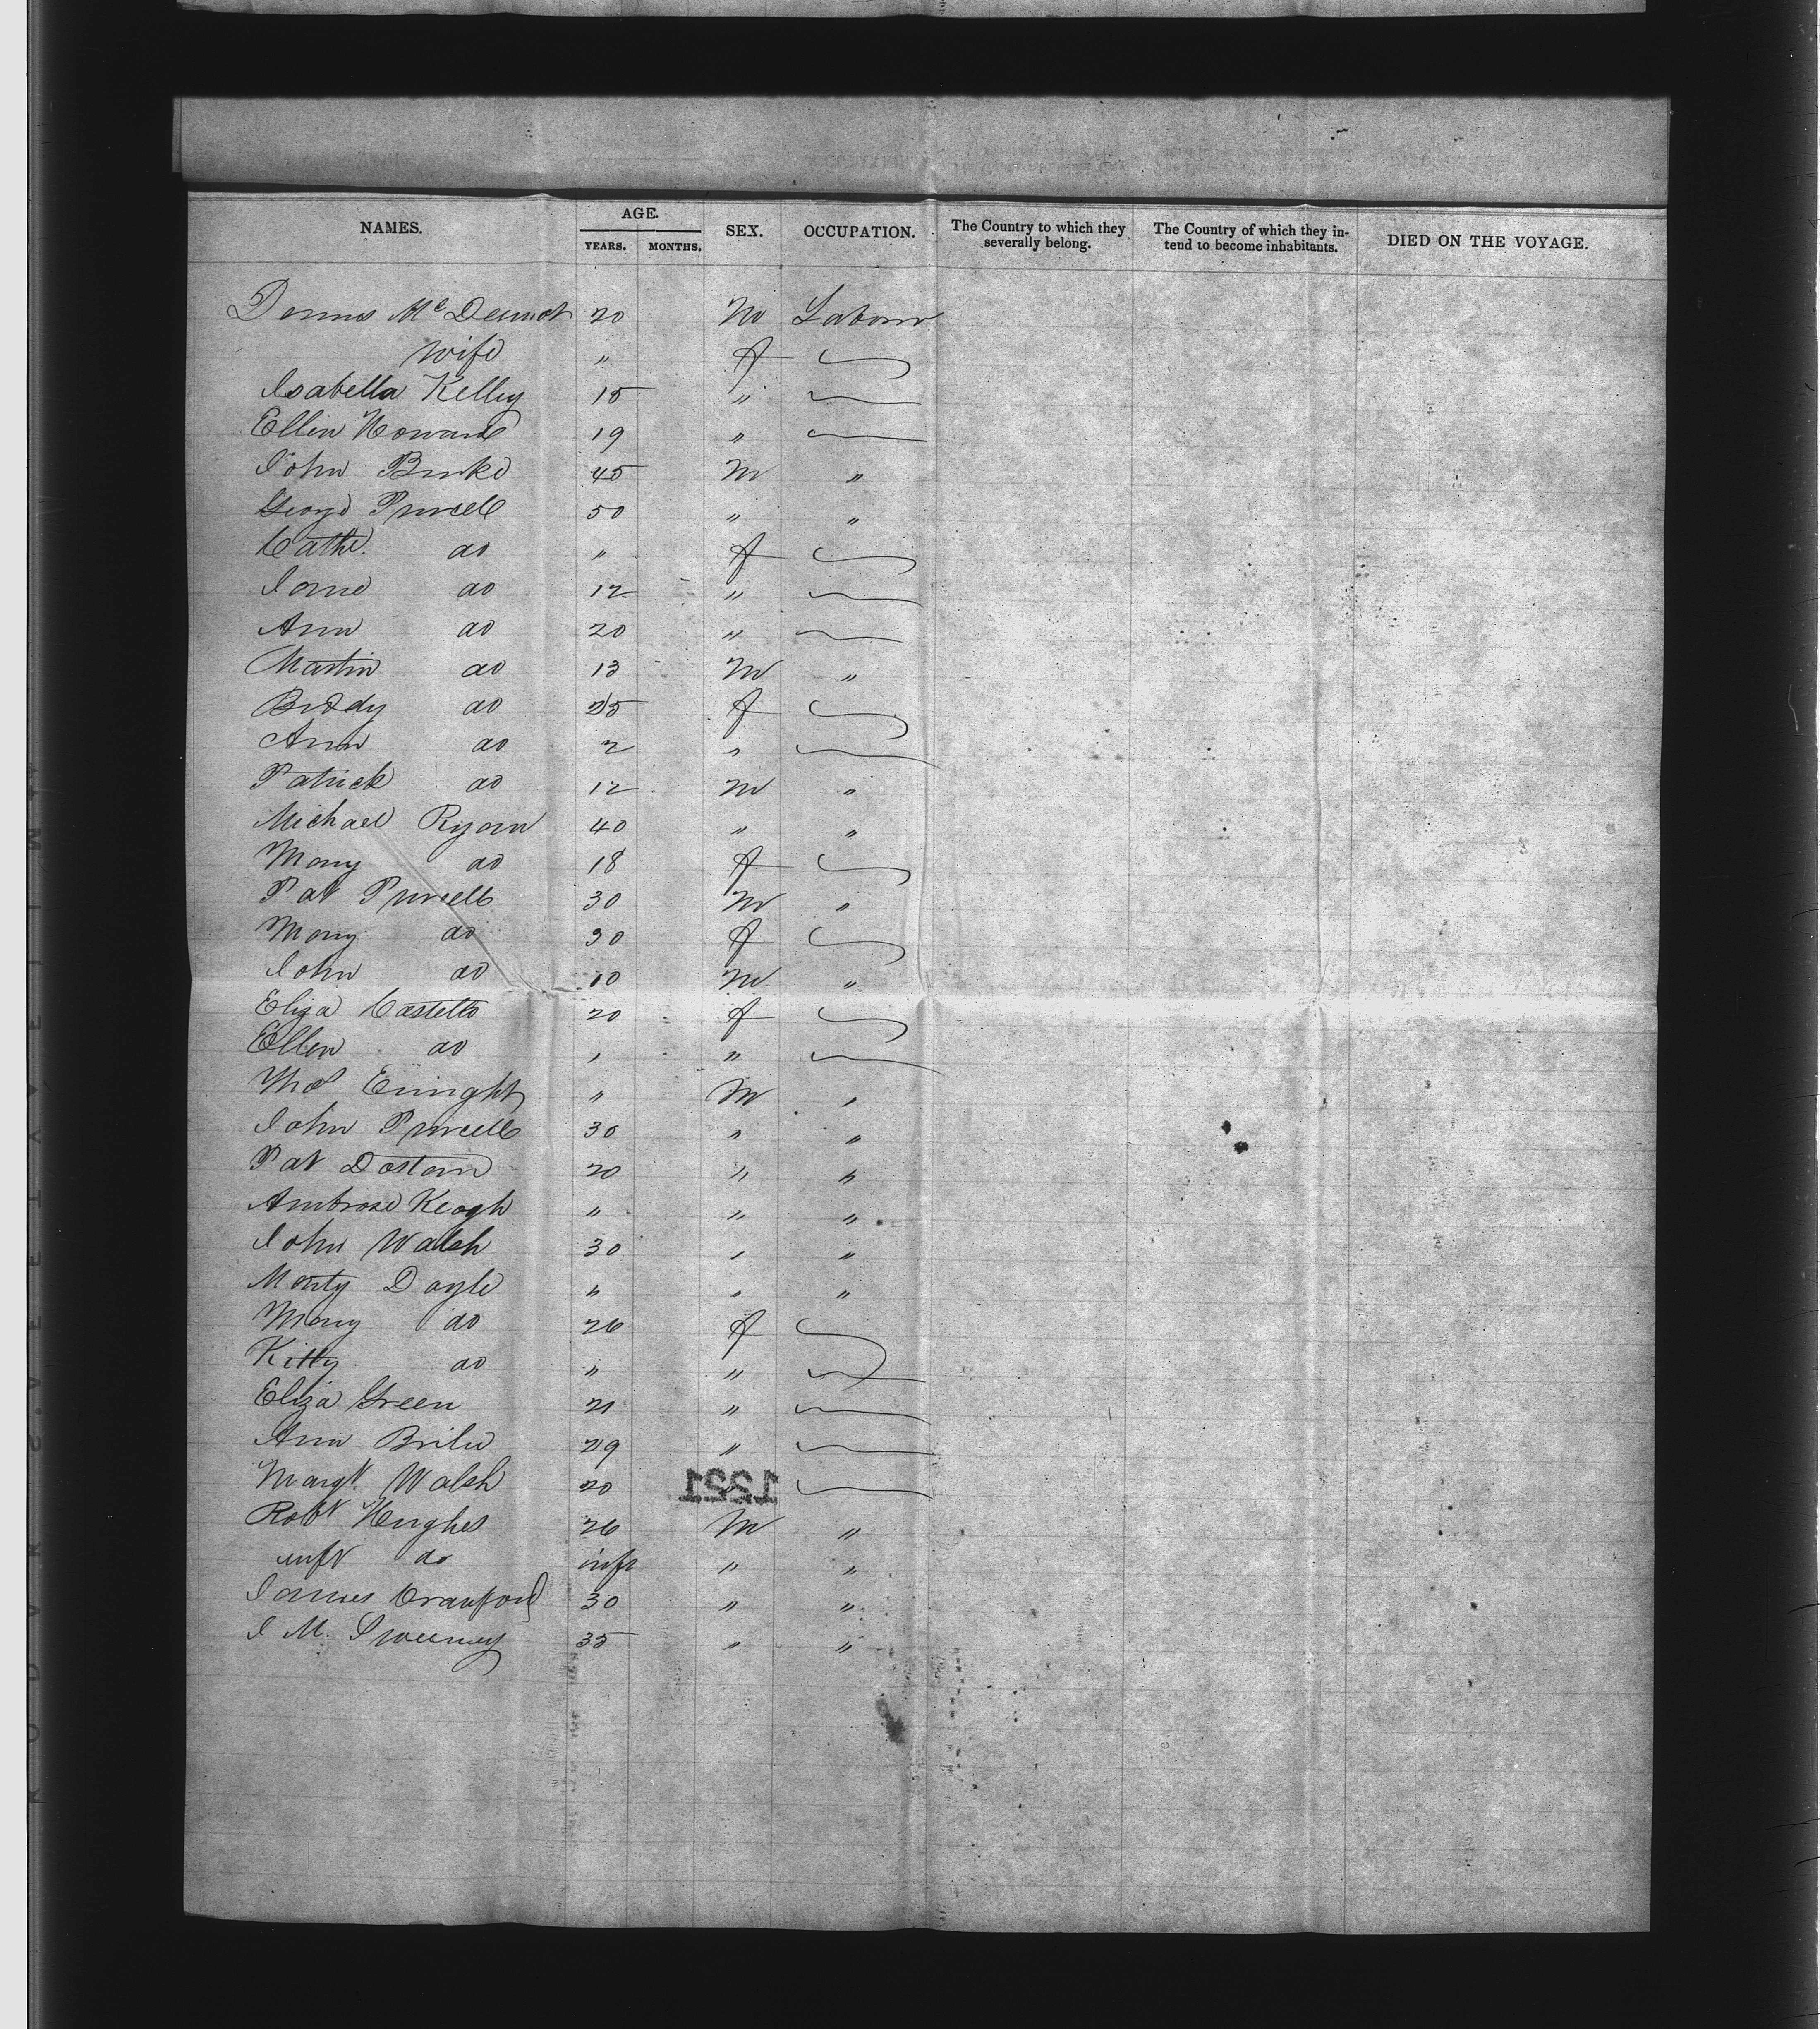 NAMES. AGE. SEX. OCCUPATION. The Country to which they severally belong. The Country of which they intend to become inhabitants. DIED ON THE VOYAGE.
YEARS. MONTHS.
Dennis McDermot 20 M Labour
wife " f
Isabella Kelly 15 "
Ellen Howard 19 "
John Burke 45 M "
George Purcell 50 " "
Cathe. do " f
Jane do 12 "
Ann do 20 "
Martin do 13 M "
Biddy do 25 f
Ann do 2 "
Patrick do 12 M "
Michael Ryan 40 " "
Mary do 18 f
Pat Purcell 30 M "
Mary do 30 f
John do 10 M "
Eliza Castello 20 f
Ellen do " "
Thos Enright " M "
John Purcell 30 " "
Pat Dostan 20 " "
Ambrose Keogh " " "
John Walsh 30 " "
Marty Doyle " " "
Mary do 26 f
Kitty do " "
Eliza Green 21 "
Ann 29 "
Margt. Walsh 20
1221
Robt Hughes 26 M "
inft do inft " "
James Crawford 30 " "
J M. Sweeney 35 " "